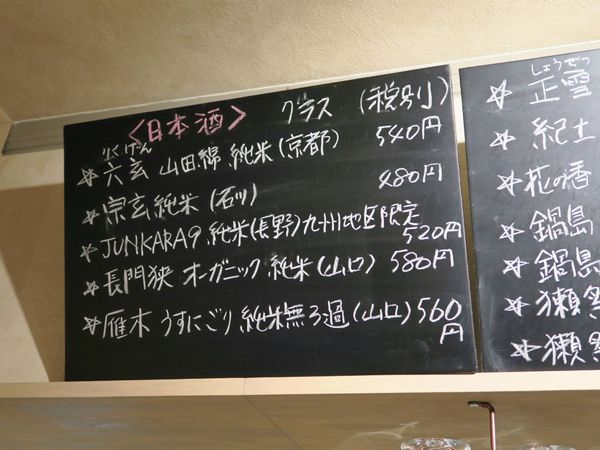 <日本酒> グラス (税別)
りくげん
☆六玄 山田錦 純米(京都) 540円
☆宗玄純米(石川) 480円
☆JUNKARA9 純米(長野)九州地区限定 520円
☆長門峡 オーガニック 純米(山口) 580円
☆雁木 うすにごり 純米無ろ過(山口) 560円
しょうせつ
☆正雪
☆紀土
☆花の香
☆鍋島
☆鍋島
☆獺祭
☆獺祭